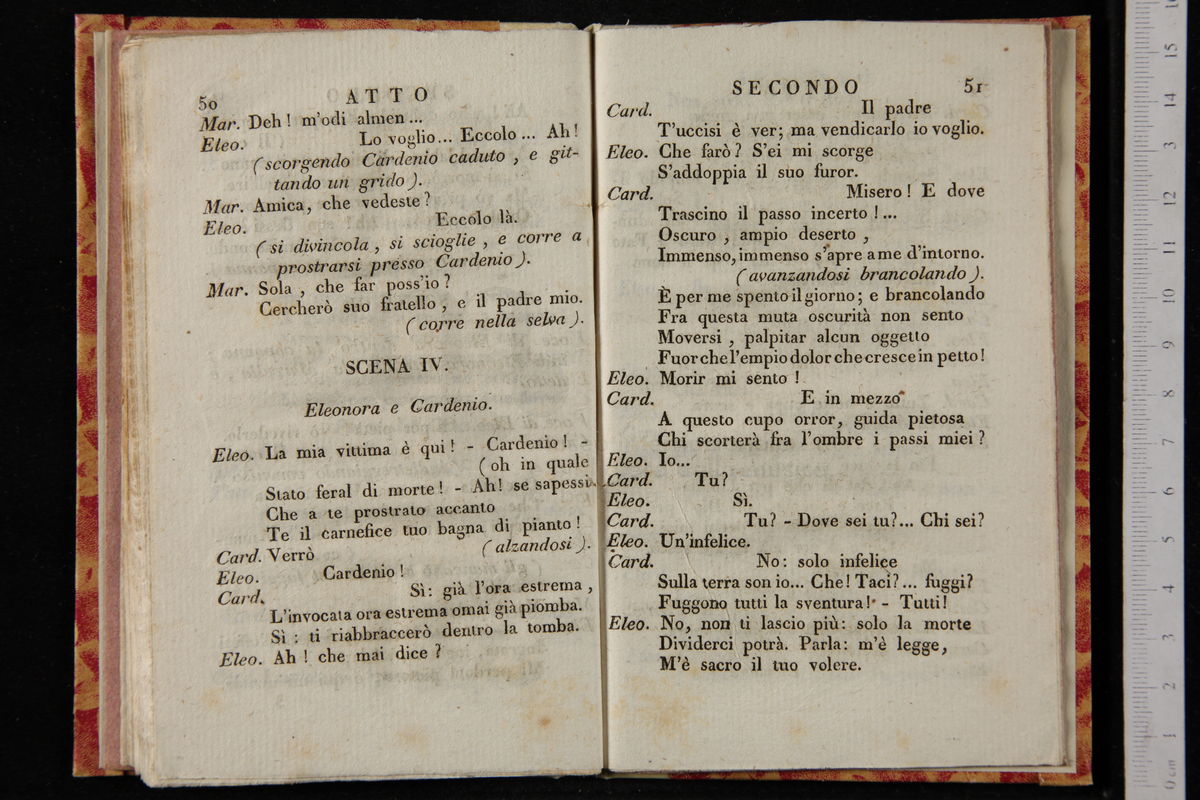 50
ATTO
Mar. Deh! m'odi almen...
Eleo. Lo voglio... Eccolo... Ah!
(scorgendo Cardenio caduto, e git-
tando un grido).
Mar. Amica, che vedeste?
Eleo. Eccolo là.
(si divincola, si scioglie, e corre a
prostrarsi presso Cardenio).
Mar. Sola, che far poss'io?
Cercherò suo fratello, e il padre mio.
(corre nella selva).
SCENA IV.
Eleonora e Cardenio.
Eleo. La mia vittima è qui! - Cardenio! -
(oh in quale
Stato feral di morte! - Ah! se sapessi
Che a te prostrato accanto
Te il carnefice tuo bagna di pianto!
Card. Verrò (alzandosi).
Eleo. Cardenio!
Card. Sì: già l'ora estrema,
L'invocata ora estrema omai già piomba.
Sì: ti riabbraccerò dentro la tomba.
Eleo. Ah! che mai dice?
SECONDO
51
Card. Il padre
T'uccisi è ver; ma vendicarlo io voglio.
Eleo. Che farò? S'ei mi scorge
S'addoppia il suo furor.
Card. Misero! E dove
Trascino il passo incerto!...
Oscuro, ampio deserto,
Immenso, immenso s'apre a me d'intorno.
(avanzandosi brancolando).
È per me spento il giorno; e brancolando
Fra questa muta oscurità non sento
Moversi, palpitar alcun oggetto
Fuorchè l'empio dolor che cresce in petto!
Eleo. Morir mi sento!
Card. E in mezzo
A questo cupo orror, guida pietosa
Chi scorterà fra l'ombre i passi miei?
Eleo. Io...
Card. Tu?
Eleo. Sì.
Card. Tu? - Dove sei tu?... Chi sei?
Eleo. Un'infelice.
Card. No: solo infelice
Sulla terra son io... Che! Taci?... fuggi?
Fuggono tutti la sventura! - Tutti!
Eleo. No, non ti lascio più: solo la morte
Dividerci potrà. Parla: m'è legge,
M'è sacro il tuo volere.
0 cm 1 2 3 4 5 6 7 8 9 10 11 12 13 14 15 16